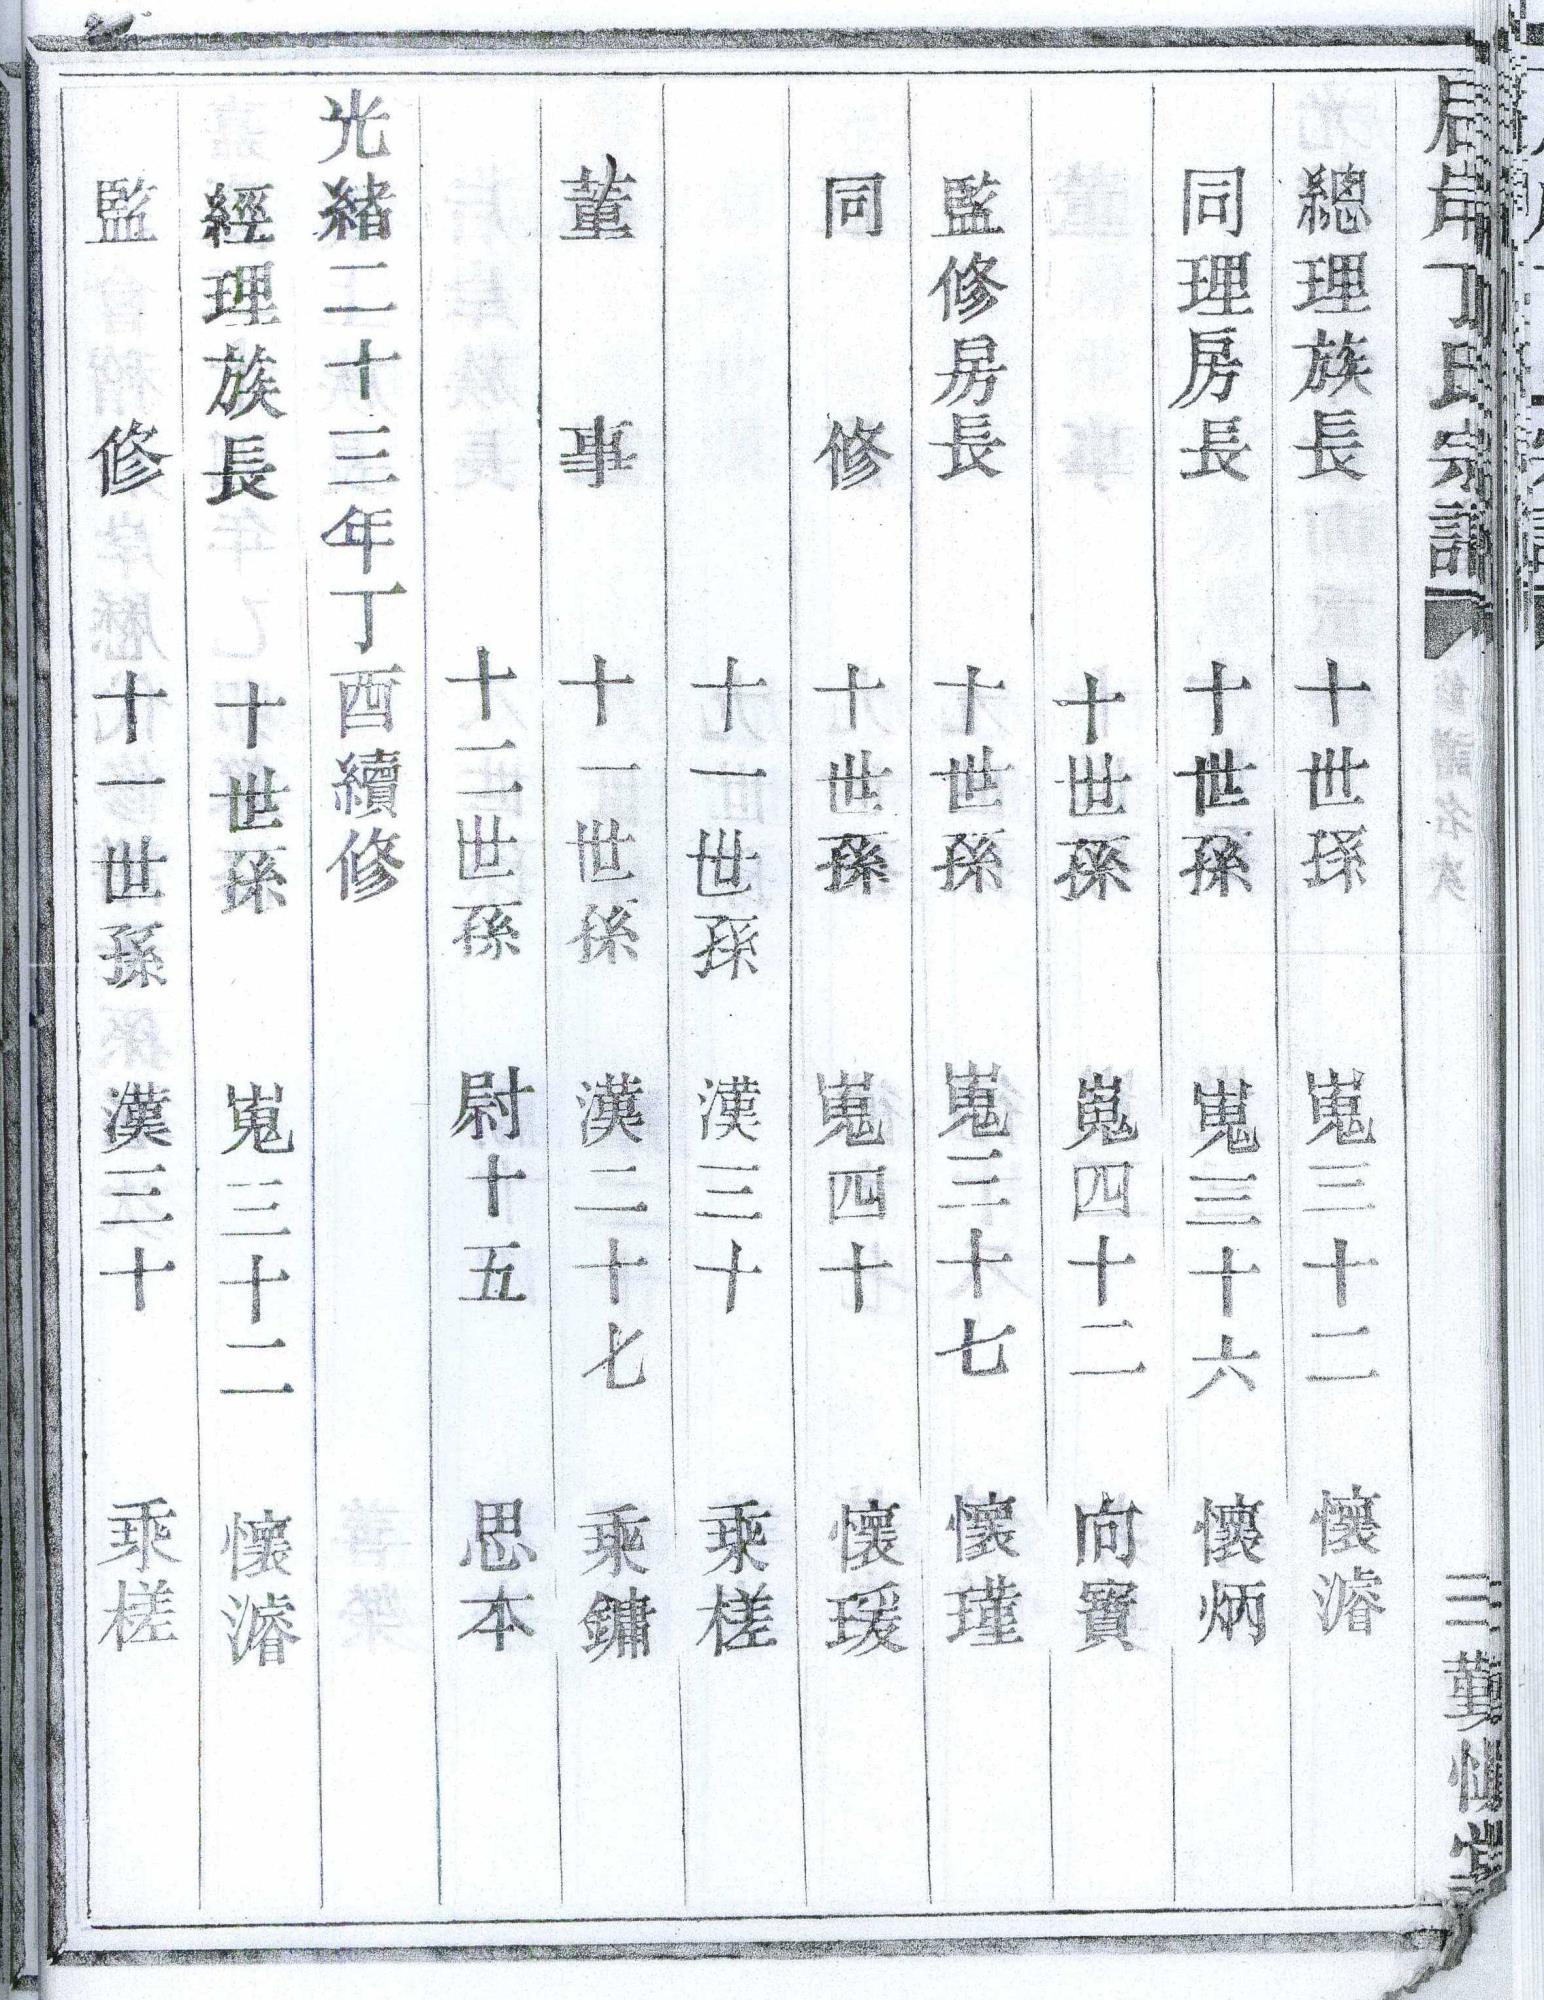 后岸丁氏宗譜
修譜名次
三
總理族長 十世孫 嵬三十二 懷濬
同理房長 十世孫 嵬三十六 懷炳
十世孫 嵬四十二 向寶
監修房長 十世孫 嵬三十七 懷瑾
同修 十世孫 嵬四十 懷瑗
十一世孫 漢三十 乘槎
董事 十一世孫 漢二十七 乘鏞
十二世孫 尉十五 思本
光緒二十三年丁酉續修
經理族長 十世孫 嵬三十二 懷濬
監修 十一世孫 漢三十 乘槎